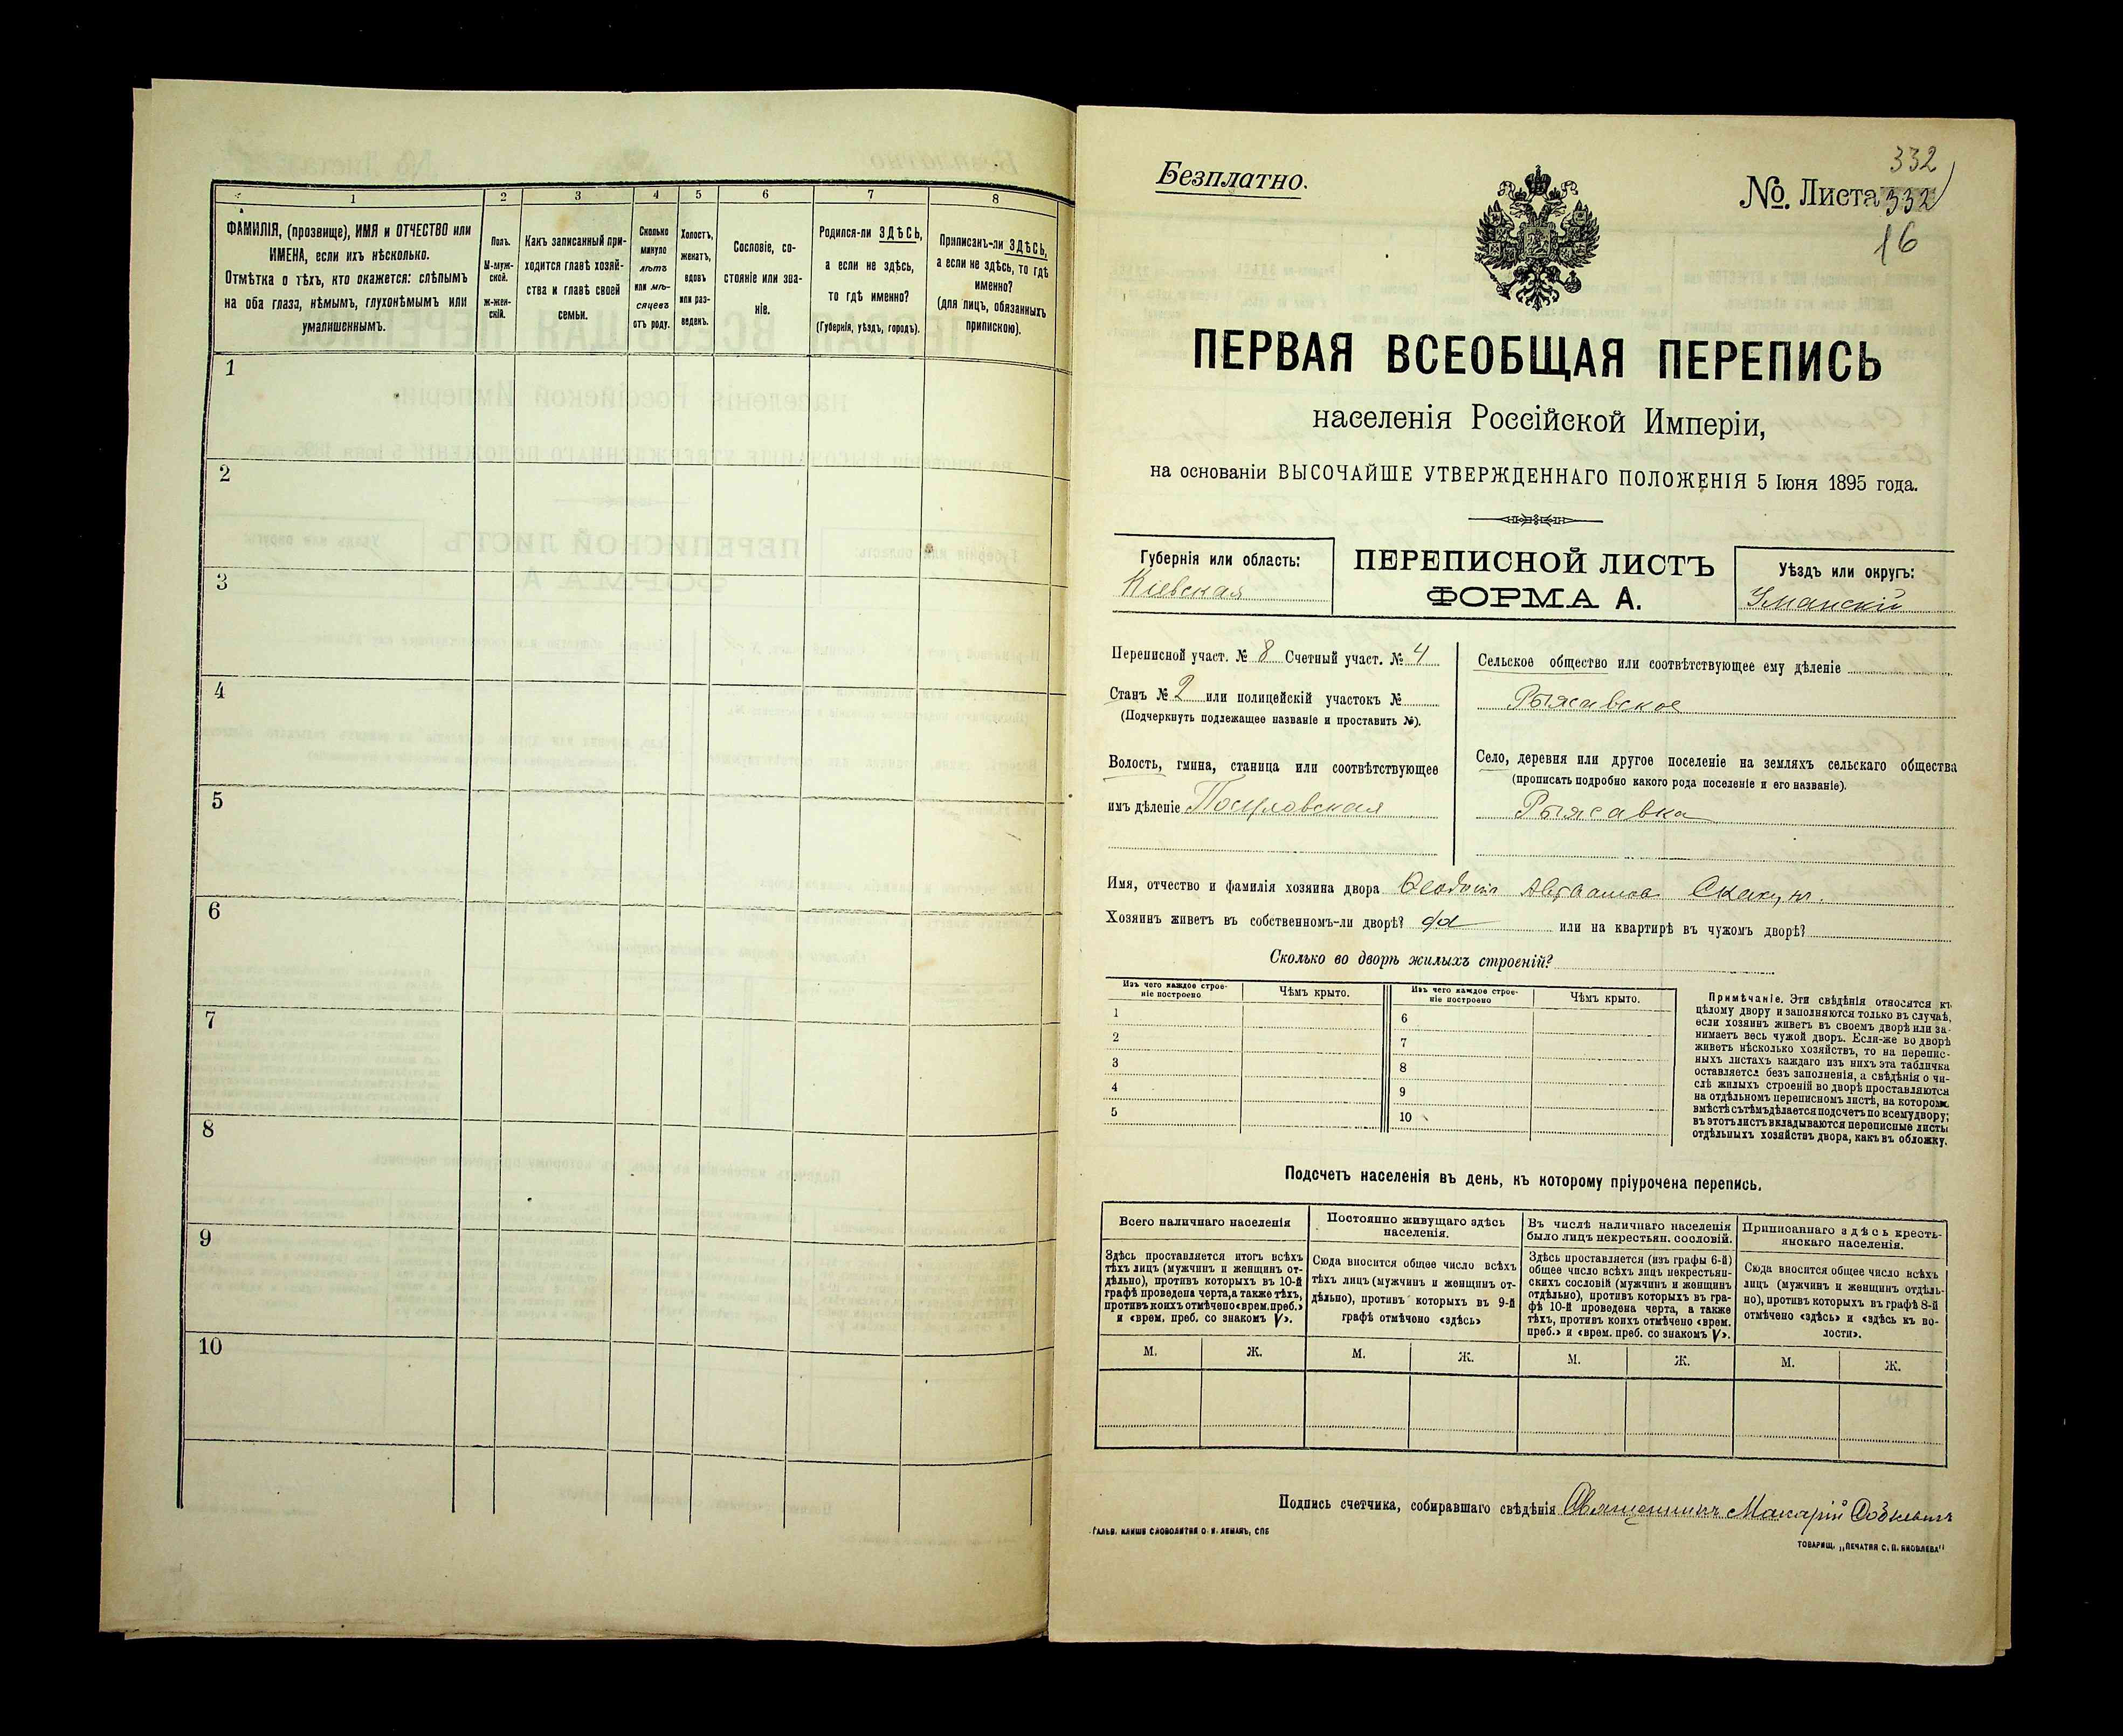 1
2
3
4
5
6
7
8
ФАМИЛІЯ, (прозвище), ИМЯ и ОТЧЕСТВО или
ИМЕНА, если ихъ нѣсколько.
Отмѣтка о тѣхъ, кто окажется: слѣпымъ
на оба глаза, нѣмымъ, глухонѣмымъ или
умалишеннымъ.
Полъ.
М-муж-
ской.
ж-жен-
скій.
Какъ записанный при-
ходится главѣ хозяй-
ства и главѣ своей
семьи.
Сколько
минуло
лѣтъ
или мѣ-
сяцевъ
отъ роду.
Холостъ,
женатъ,
вдовъ
или раз-
веденъ.
Сословіе, со-
стояніе или зва-
ніе.
Родился-ли ЗДѢСЬ,
а если не здѣсь,
то гдѣ именно?
(Губернія, уѣздъ, городъ).
Приписанъ-ли ЗДѢСЬ,
а если не здѣсь, то гдѣ
именно?
(для лицъ, обязанныхъ
припискою).
1
2
3
4
5
6
7
8
9
10
Безплатно.
332
№. Листа 332
16
ПЕРВАЯ ВСЕОБЩАЯ ПЕРЕПИСЬ
населенія Россійской Имперіи,
на основаніи ВЫСОЧАЙШЕ УТВЕРЖДЕННАГО ПОЛОЖЕНІЯ 5 Іюня 1895 года.
Губернія или область:
Кіевская
ПЕРЕПИСНОЙ ЛИСТЪ
ФОРМА А.
Уѣздъ или округъ:
Уманскій
Переписной участ. № 8 Счетный участ. № 4
Станъ № 2 или полицейскій участокъ №
(Подчеркнуть подлежащее названіе и проставить №).
Волость, гмина, станица или соотвѣтствующее
имъ дѣленіе
Сельское общество или соотвѣтствующее ему дѣленіе
Рыжавское
Село, деревня или другое поселеніе на земляхъ сельскаго общества
(прописать подробно какого рода поселеніе и его названіе).
Рыжавка
Имя, отчество и фамилія хозяина двора
Хозяинъ живетъ въ собственномъ-ли дворѣ? да или на квартирѣ въ чужомъ дворѣ?
Сколько во дворѣ жилыхъ строеній?
Изъ чего каждое строе-
ніе построено
Чѣмъ крыто.
Изъ чего каждое строе-
ніе построено
Чѣмъ крыто.
1
2
3
4
5
6
7
8
9
10
Примѣчаніе. Эти свѣдѣнія относятся къ
цѣлому двору и заполняются только въ случаѣ,
если хозяинъ живетъ въ своемъ дворѣ или за-
нимаетъ весь чужой дворъ. Если-же во дворѣ
живетъ нѣсколько хозяйствъ, то на перепис-
ныхъ листахъ каждаго изъ нихъ эта табличка
оставляется безъ заполненія, а свѣдѣнія о чи-
слѣ жилыхъ строеній во дворѣ проставляются
на отдѣльномъ переписномъ листѣ, на которомъ
вмѣстѣ съ тѣмъ дѣлается подсчетъ по всему двору;
въ этотъ листъ вкладываются переписные листы
отдѣльныхъ хозяйствъ двора, какъ въ обложку.
Подсчетъ населенія въ день, къ которому пріурочена перепись.
Всего наличнаго населенія
Здѣсь проставляется итогъ всѣхъ
тѣхъ лицъ (мужчинъ и женщинъ от-
дѣльно), противъ которыхъ въ 10-й
графѣ проведена черта, а также тѣхъ,
противъ коихъ отмѣчено «врем. преб.»
и «врем. преб. со знакомъ V».
Постоянно живущаго здѣсь
населенія.
Сюда вносится общее число всѣхъ
тѣхъ лицъ (мужчинъ и женщинъ от-
дѣльно), противъ которыхъ въ 9-й
графѣ отмѣчено «здѣсь»
Въ числѣ наличнаго населенія
было лицъ некрестьян. сословій.
Здѣсь проставляется (изъ графы 6-й)
общее число всѣхъ лицъ некрестьян-
скихъ сословій (мужчинъ и женщинъ
отдѣльно), противъ которыхъ въ гра-
фѣ 10-й проведена черта, а также
тѣхъ, противъ коихъ отмѣчено «врем.
преб.» и «врем. преб. со знакомъ V».
Приписаннаго здѣсь кресть-
янскаго населенія.
Сюда вносится общее число всѣхъ
лицъ (мужчинъ и женщинъ отдѣль-
но), противъ которыхъ въ графѣ 8-й
отмѣчено «здѣсь» и «здѣсь къ во-
лости».
М. Ж. М. Ж. М. Ж. М. Ж.
Подпись счетчика, собиравшаго свѣдѣнія Священникъ Макарій
ГАЛЬВ. КЛИШЕ СЛОВОЛИТНЯ О. И. ЛЕМАНЪ, СПБ
ТОВАРИЩ. „ПЕЧАТНЯ С. П. ЯКОВЛЕВА"